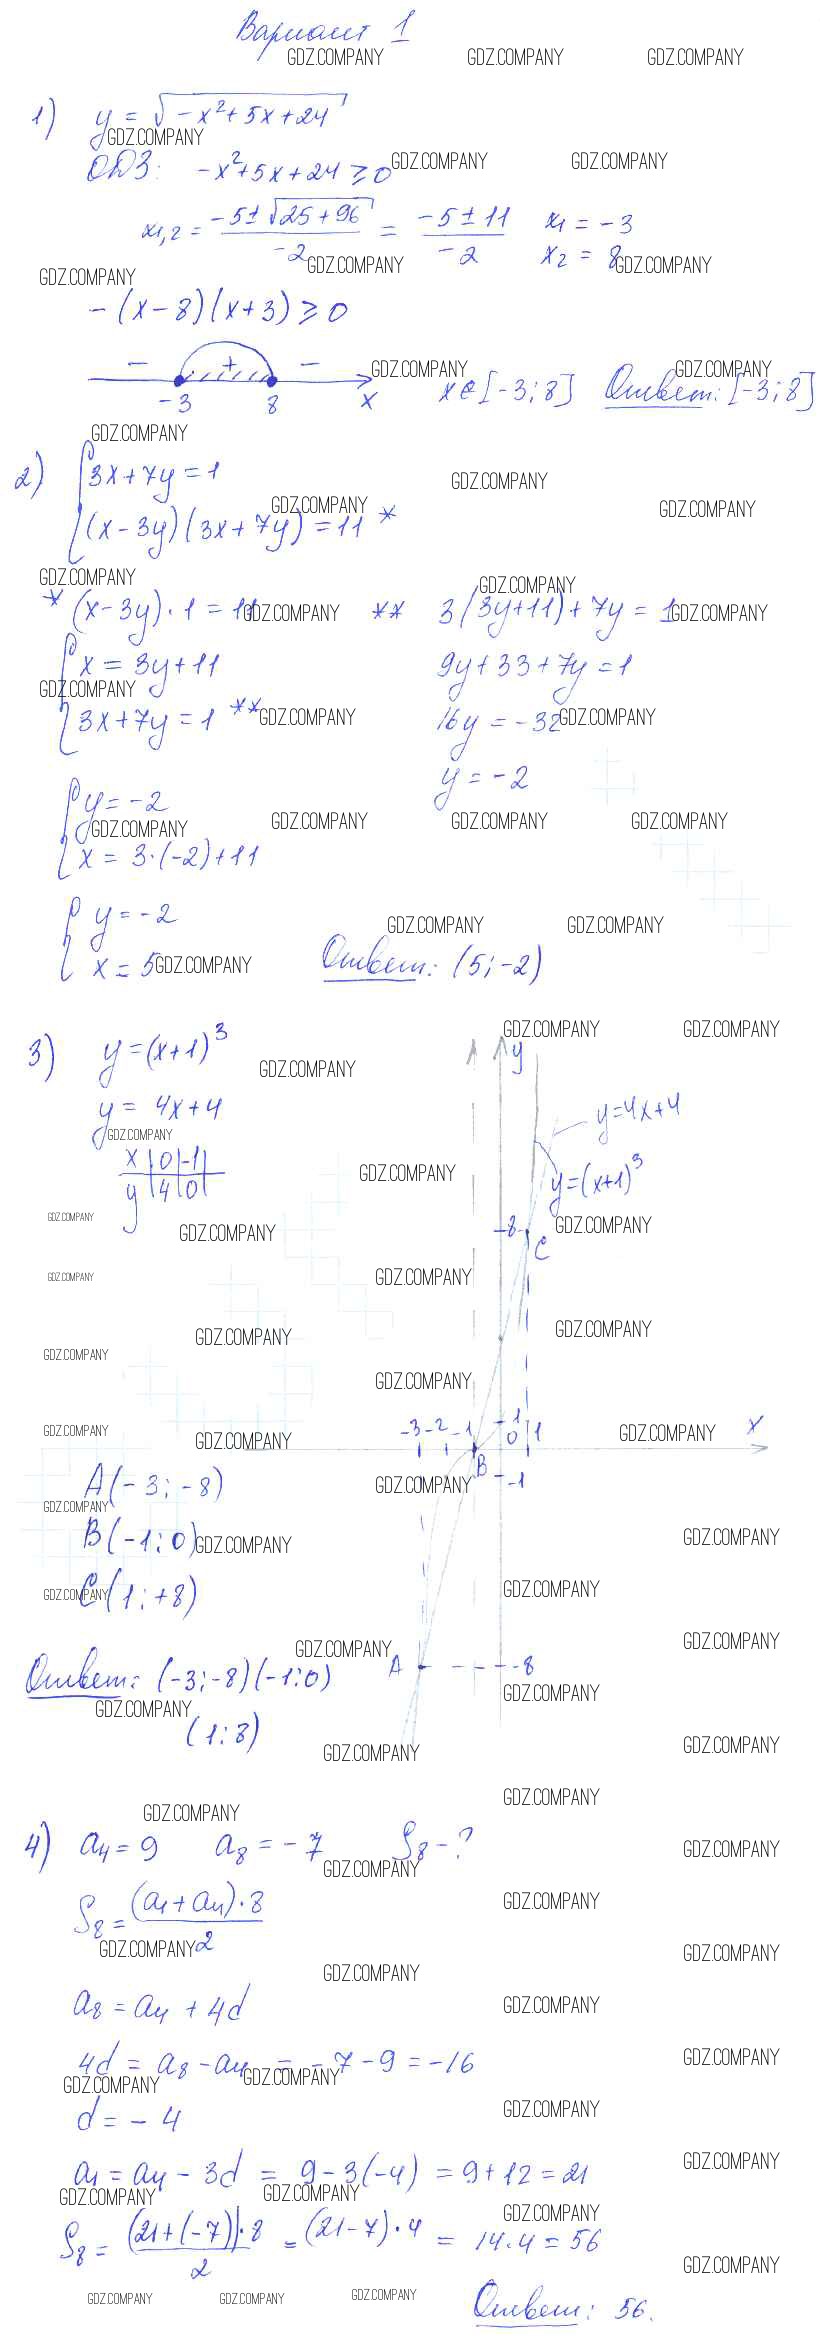 Вариант 1
1) y = √(-x²+5x+24)
ОДЗ: -x²+5x+24 ≥ 0
x₁,₂ = (-5±√(25+96))/(-2) = (-5±11)/(-2) x₁ = -3
x₂ = 8
-(x-8)(x+3) ≥ 0
- + -
-3 8 x
x ∈ [-3; 8] Ответ: [-3; 8]
2) { 3x+7y = 1
(x-3y)(3x+7y) = 11 *
* (x-3y)·1 = 11 ** 3(3y+11)+7y = 1
{ x = 3y+11 9y+33+7y = 1
3x+7y = 1 ** 16y = -32
y = -2
{ y = -2
x = 3·(-2)+11
{ y = -2
x = 5 Ответ: (5; -2)
3) y = (x+1)³
y = 4x+4
x | 0 | -1 |
y | 4 | 0 |
y
y=4x+4
y=(x+1)³
-8
C
-3 -2 -1 -1 0 1 x
B -1
A(-3; -8)
B(-1; 0)
C(1; +8)
A -8
Ответ: (-3; -8)(-1; 0)
(1; 8)
4) a₄ = 9 a₈ = -7 S₈ - ?
S₈ = (a₁+a₄)·8/2
a₈ = a₄ + 4d
4d = a₈ - a₄ = -7-9 = -16
d = -4
a₁ = a₄ - 3d = 9-3(-4) = 9+12 = 21
S₈ = (21+(-7))·8/2 = (21-7)·4 = 14·4 = 56
Ответ: 56.
GDZ.COMPANY